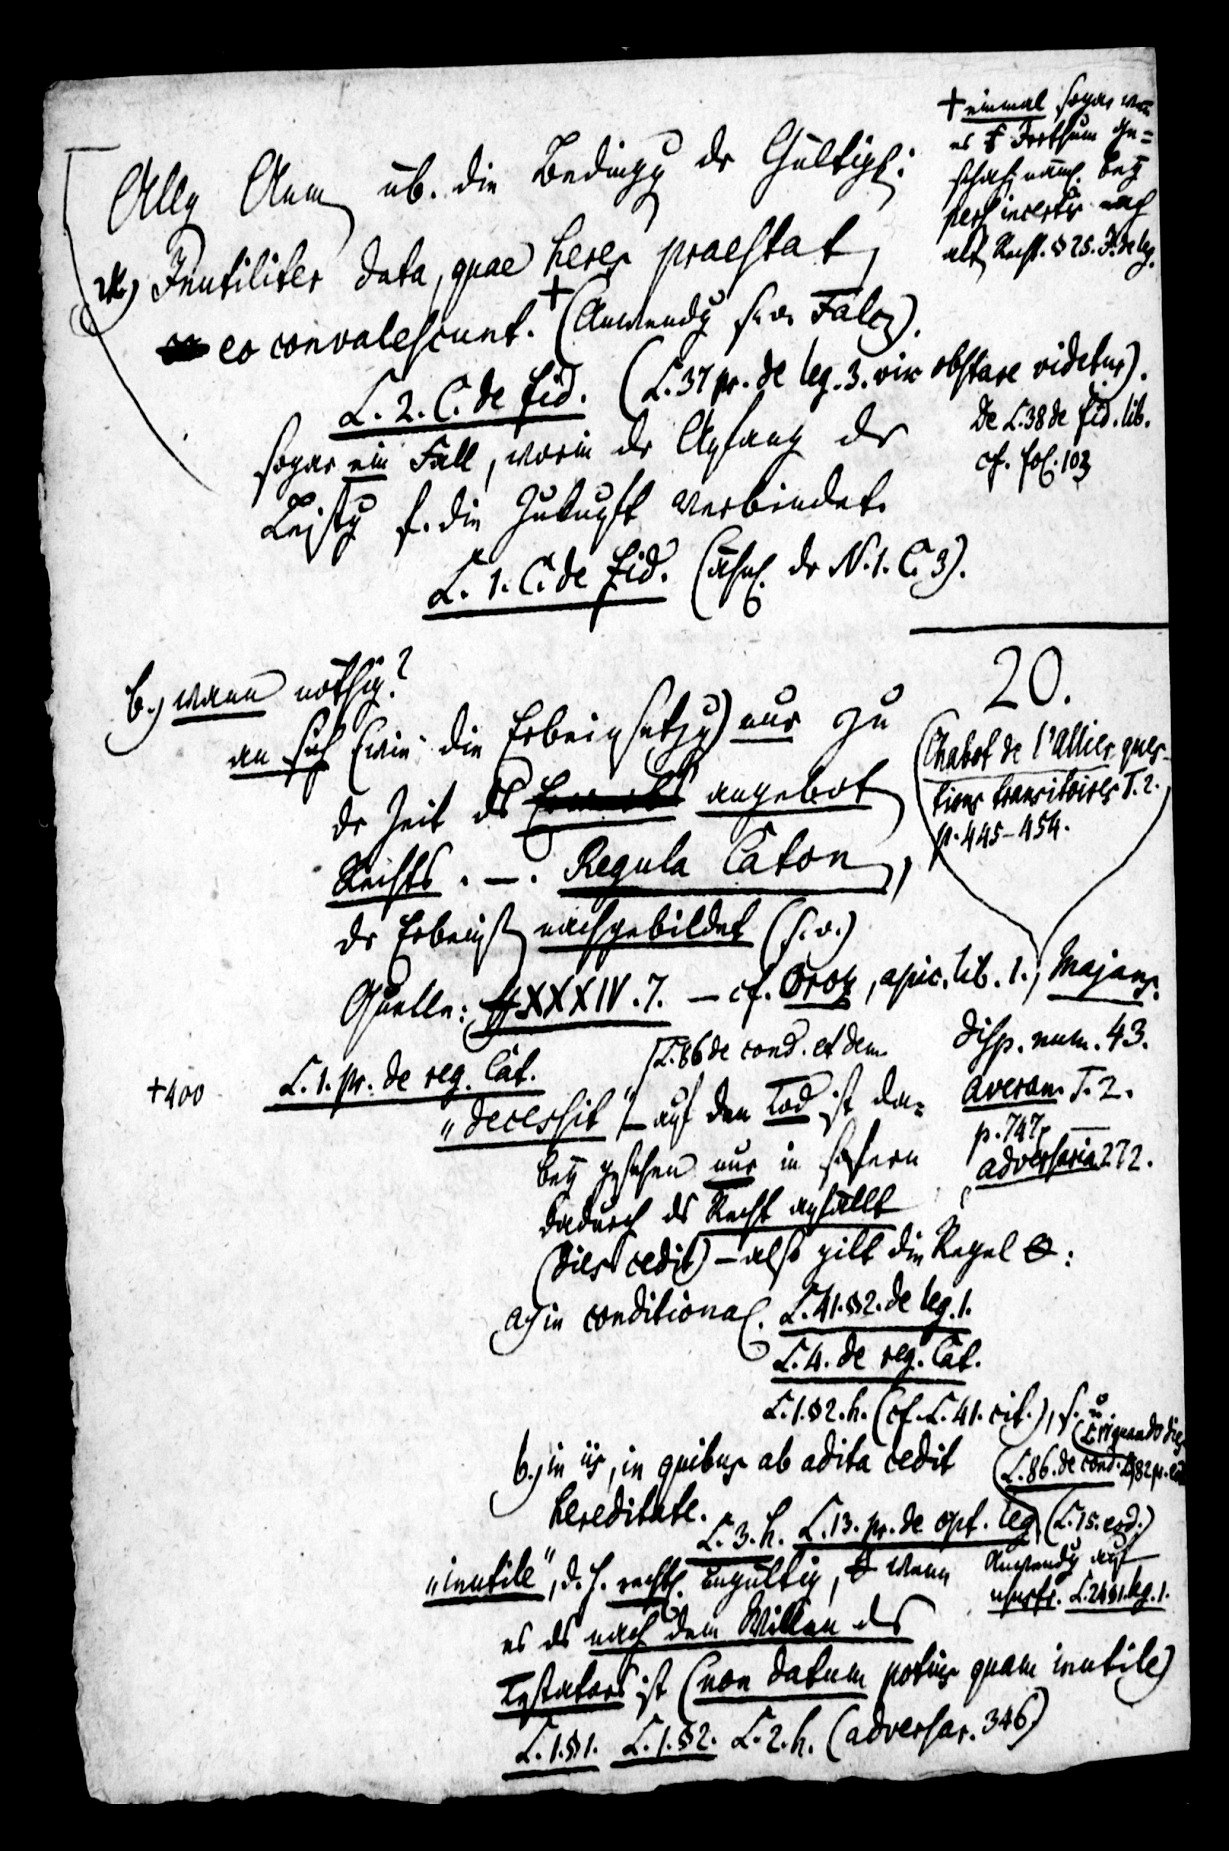 Allg Anm üb. die Bedingg der Gültigk:
a.) Inutiliter data, quae heres praestat,
eo convalescunt. + (Anwendg s. v. Falc.).
+ einmal sogar
es Irrthum ge=
schah, näml. bey
pers incertis nach
alt Recht. § 25. J. de leg.
L. 2. C. de fid. (L. 37 pr. de leg. 3. vix obstare videtur).
De L. 38 de fid. lib.
cf. fol. 103
sogar ein Fall, worin der Anfang der
Leistg f. die Zukunft verbindet.
L. 1. C. de fid. (ähnl. der N. 1. C. 3).
20.
b.) wann nöthig?
an sich (wie die Erbeinsetzg) nur zu
der Zeit des Erwerbs angebot
Rechts. —. Regula Caton,
der Erbeinst nachgebildet (s. v.)
Chabot de l'Allier ques-
tions transitoires T. 2.
p. 445–454.
Quelle: ff XXXIV. 7. — cf. Oroz, apic. lib. 1., Majans.
disp. num. 43.
averan. T. 2.
p. 747,
adversaria 272.
+400
L. 1. pr. de reg. Cat.
L. 86 de cond. et dem
„decessit" — auf den Tod ist da=
bey gesehen nur in sofern
dadurch das Recht anfällt
(dies cedit) — also gilt die Regel:
a.) in conditional. L. 41. § 2. de leg. 1.
L. 4. de reg. Cat.
L. 1. § 2. h. (cf. L. 41. cit.), s.
b.) in iis, in quibus ab adita cedit
hereditate.
quando dies
L. 86. de cond.
L. 3. h. L. 13. pr. de opt. leg (L. 15. eod.)
Anwendg auf
usufr. L. 24 § 1. leg. 1.
„inutile", d. h. rechtl. ungültig, wenn
es das nach dem Willen des
Testators ist (non datum potius quam inutile)
L. 1. § 1. L. 1. § 2. L. 2. h. (adversar. 346)